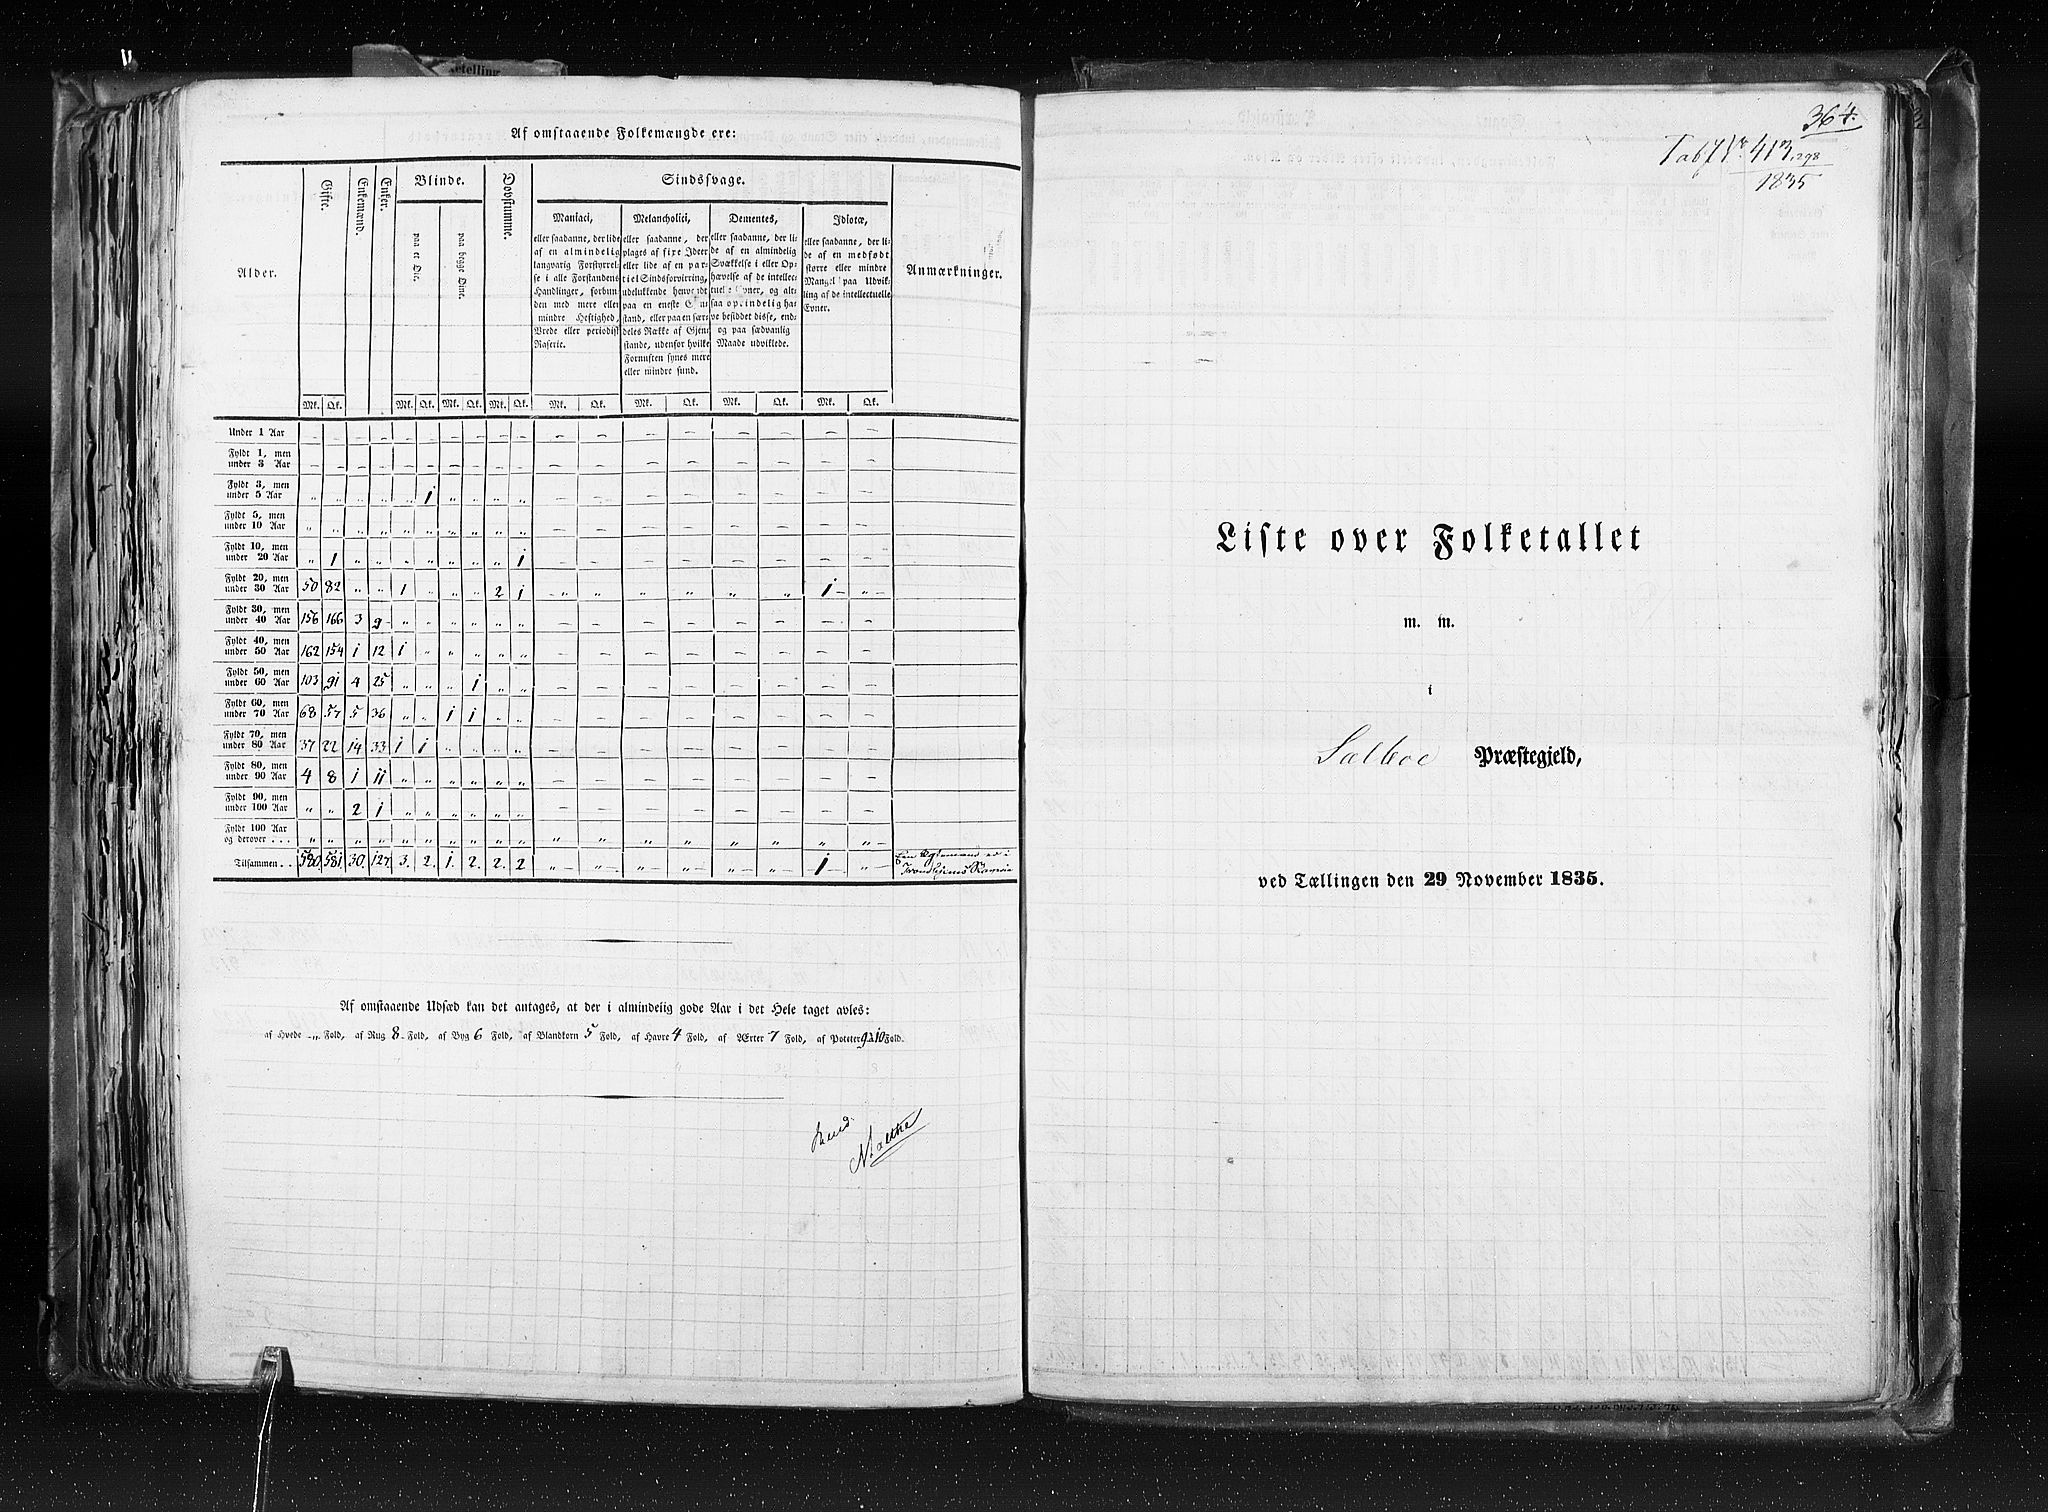 etelling
Af omstaaende Folkemængde ere:
Alder.
Gifte.
Enkemænd.
Enker.
Blinde.
paa et Øie.
paa begge Øine.
Døvstumme.
Sindssvage.
Maniaci,
eller saadanne, der lide
af en almindelig
langvarig Forstyrrel-
se i alle Forstandens
Handlinger, forbun-
den med mere eller
mindre Heftighed,
Vrede eller periodisk
Raserie.
Melancholici,
eller saadanne, der
plages af fire Ideer
eller lide af en par-
tiel Sindsforvirring,
udelukkende henvendt
paa en eneste Gjen-
stand, eller paa en sær-
deles Række af Gjen-
stande, udenfor hvilke
Fornuften synes mere
eller mindre sund.
Dementes,
eller saadanne, der li-
de af en almindelig
Svækkelse i eller Op-
hævelse af de intellec-
tuelle Evner, og alt-
saa oprindelig ha-
ve besiddet disse, end-
og paa sædvanlig
Maade udviklede.
Idiotæ,
eller saadanne, der li-
de af en medfødt
større eller mindre
Mangel paa Udvik-
ling af de intellectuelle
Evner.
Anmærkninger.
Mk. Qk. Mk. Qk. Mk. Qk. Mk. Qk. Mk. Qk. Mk. Qk. Mk. Qk. Mk. Qk.
Under 1 Aar – – – – – – – – – – – – – – – – – –
Fyldt 1, men
under 3 Aar – – – – – – – – – – – – – – – – – –
Fyldt 3, men
under 5 Aar „ „ „ „ „ 1 „ „ „ „ – – – – – – – –
Fyldt 5, men
under 10 Aar „ „ „ „ „ „ „ „ „ „ – – – – – – – –
Fyldt 10, men
under 20 Aar „ 1 „ „ „ „ „ „ „ 1 – – – – – – – –
Fyldt 20, men
under 30 Aar 50 82 „ „ 1 „ „ „ 2 1 „ „ „ „ „ „ 1 „
Fyldt 30, men
under 40 Aar 156 166 3 9 „ „ „ „ „ „ – – – – – – – –
Fyldt 40, men
under 50 Aar 162 154 1 12 1 „ „ „ „ „ – – – – – – – –
Fyldt 50, men
under 60 Aar 103 91 4 25 „ „ „ 1 „ „ – – – – – – – –
Fyldt 60, men
under 70 Aar 68 57 5 36 „ „ 1 1 „ „ – – – – – – – –
Fyldt 70, men
under 80 Aar 37 22 14 33 1 1 „ „ „ „ – – – – – – – –
Fyldt 80, men
under 90 Aar 4 8 1 11 „ „ „ „ „ „ – – – – – – – –
Fyldt 90, men
under 100 Aar „ „ 2 1 „ „ „ „ „ „ – – – – – – – –
Fyldt 100 Aar
og derover . . . „ „ „ „ „ „ „ „ „ „ „ „ „ „ „ „ „ „
Tilsammen . . 580. 581. 30. 127. 3. 2. 1. 2. 2. 2 „ „ „ „ „ „ 1 „
Af omstaaende Udsæd kan det antages, at der i almindelig gode Aar i det Hele taget avles:
af Hvede „ Fold, af Rug 8 Fold, af Byg 6 Fold, af Blandkorn 5 Fold, af Havre 4 Fold, af Ærter 7 Fold, af Poteter 9 à 10 Fold.
364.
413
1835
Liste over Folketallet
m. m.
i
Sælboe Præstegjeld,
ved Tællingen den 29 November 1835.